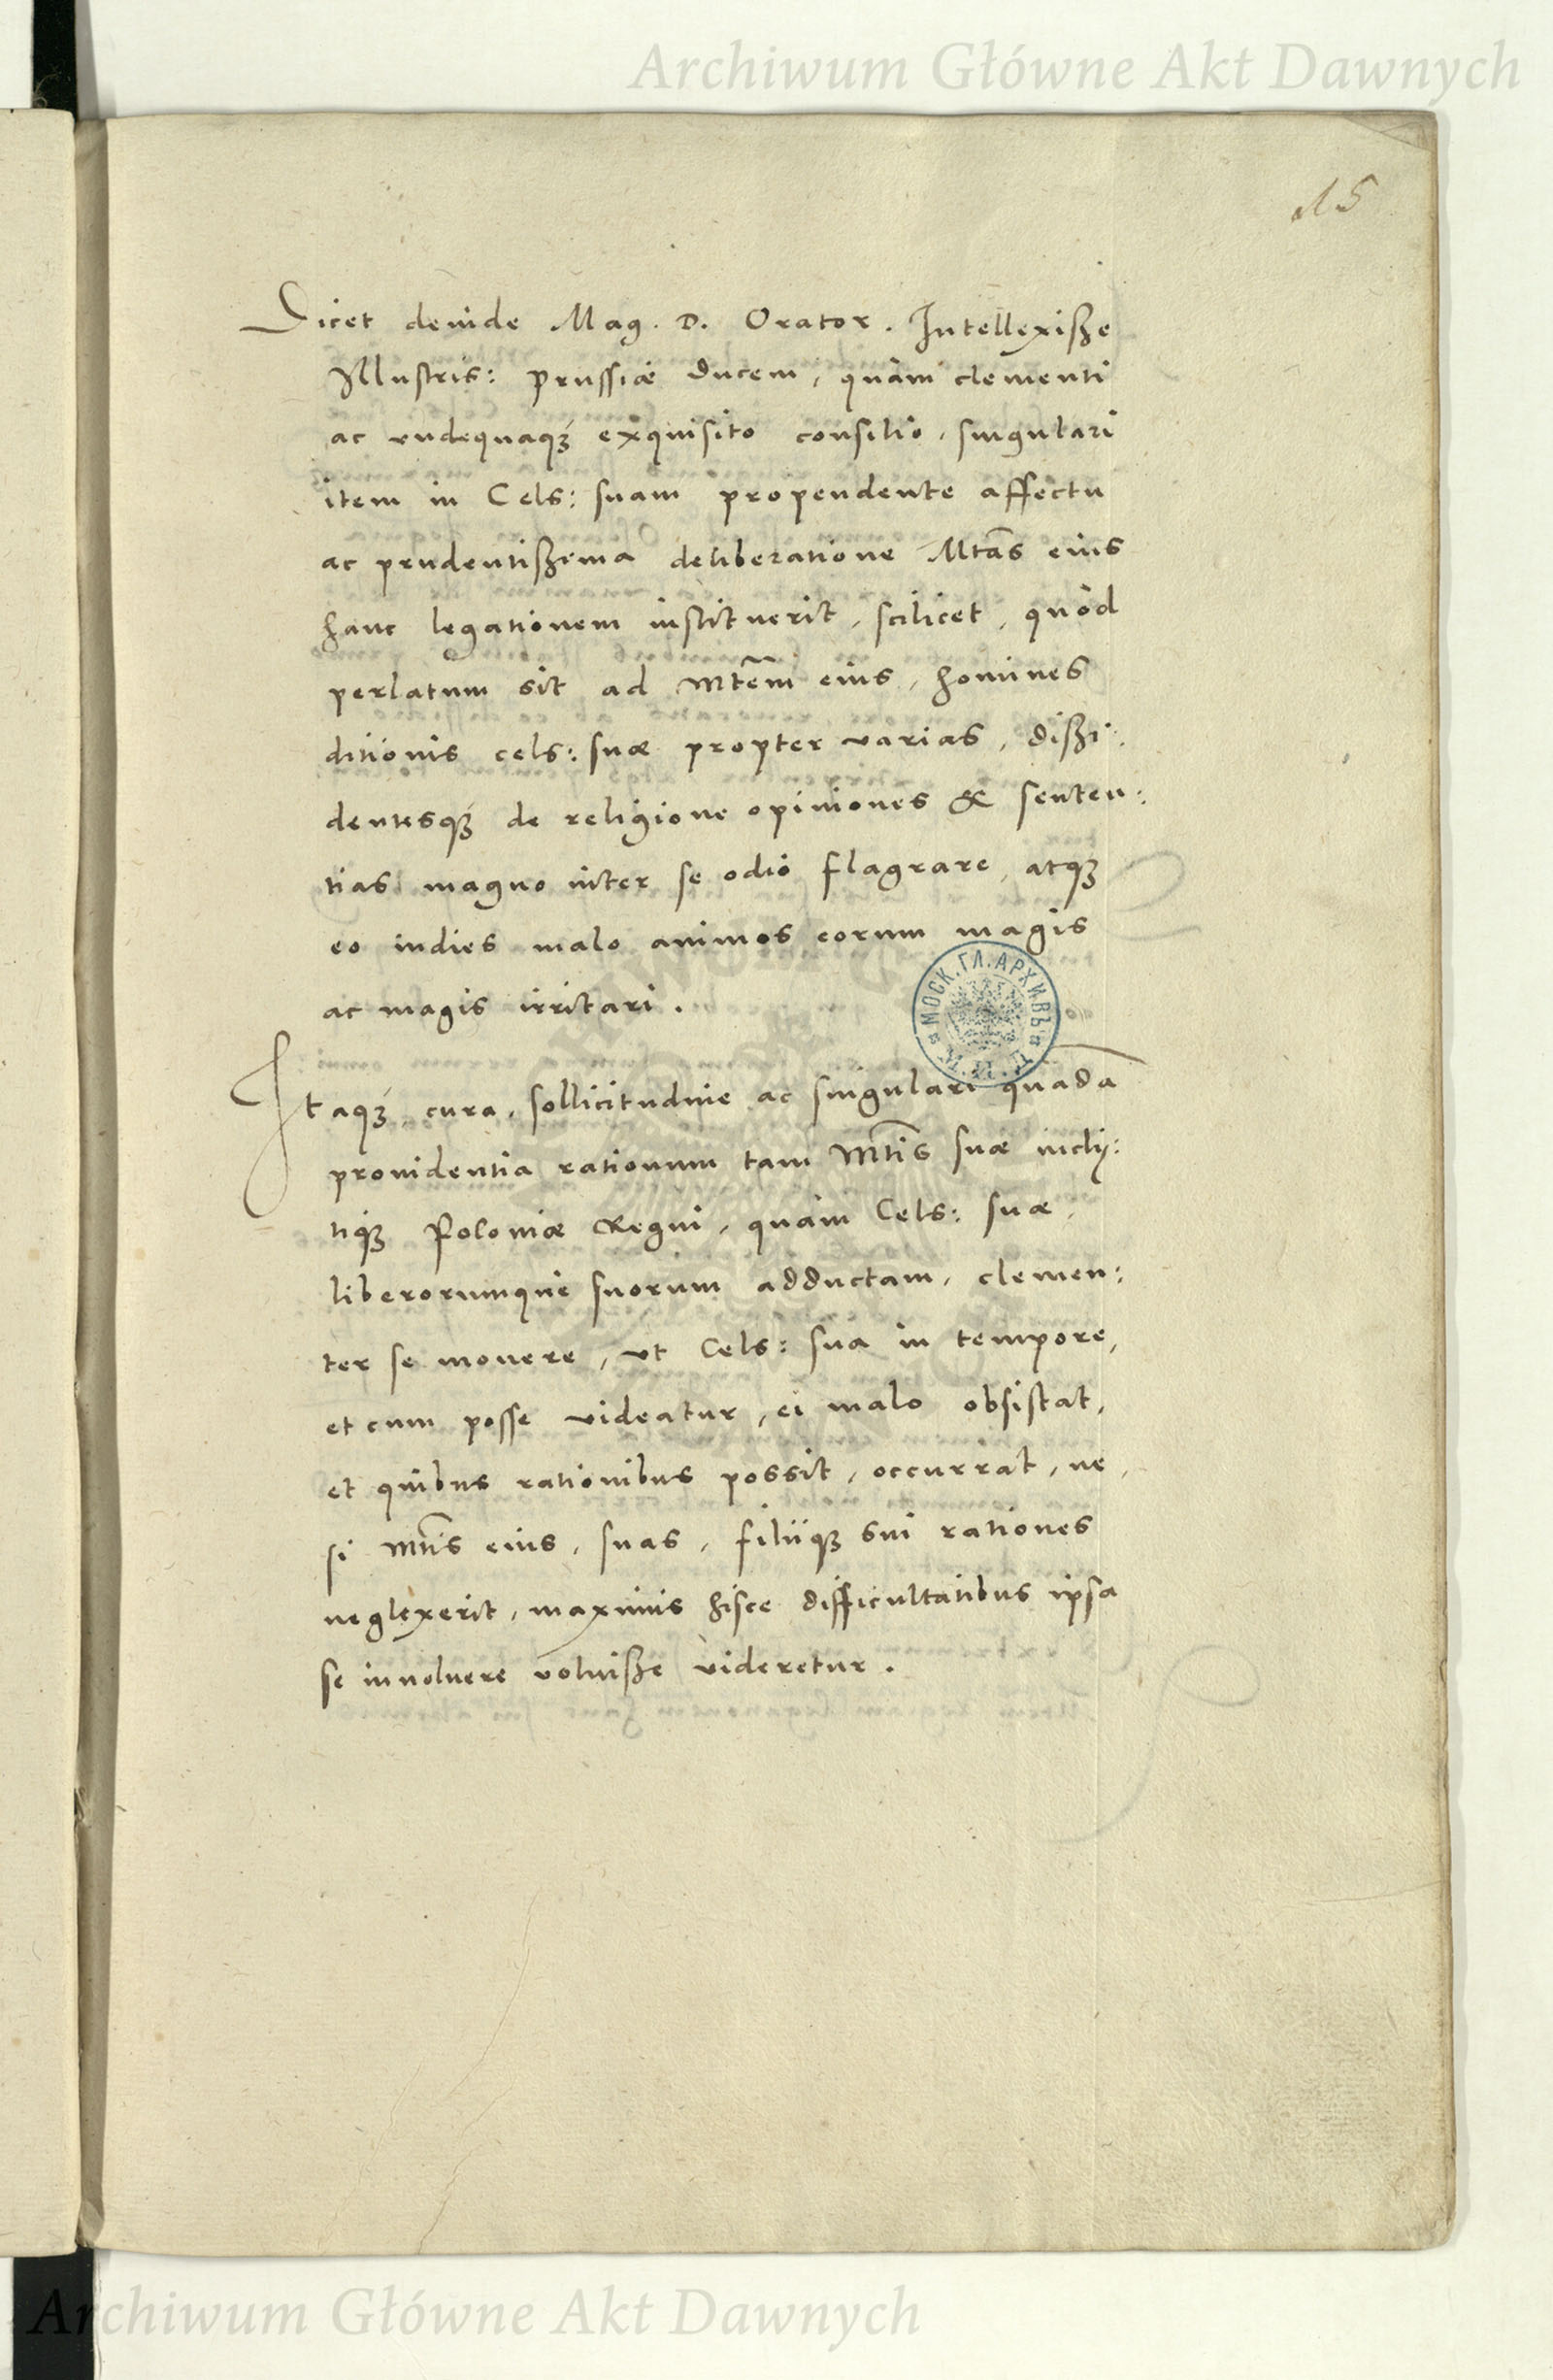 Archiwum Główne Akt Dawnych
15
Dicet deinde Mag. D. Orator. Intellexisse
Illustris: Prussiæ Ducem, quàm clementi
ac vndequaqꝫ exquisito consilio, singulari
item in Cels: suam propendente affectu
ac prudentissima deliberatione Mtãs eius
hanc legationem instituerit, scilicet, quòd
perlatum sit ad Mtẽm eius, homines
ditionis cels: suæ propter varias, dissi:
dentesqꝫ de religione opiniones & senten:
tias magno inter se odio flagrare, atqꝫ
eo indies malo animos eorum magis
ac magis irritari.
Itaqꝫ cura, sollicitudine ac singulari quadā
prouidentia rationum tam Mtĩs suæ incly:
tiqꝫ Poloniæ Regni, quàm Cels: suæ,
liberorumque suorum adductam, clemen:
ter se mouere, vt Cels: sua in tempore,
et cum posse videatur, ei malo obsistat,
et quibus rationibus possit, occurrat, ne,
si Mtĩs eius, suas, filiiqꝫ sui rationes
neglexerit, maximis hisce difficultatibus ipsa
se inuoluere voluisse videretur.
МОСК. ГЛ. АРХИВЪ
Archiwum Główne Akt Dawnych